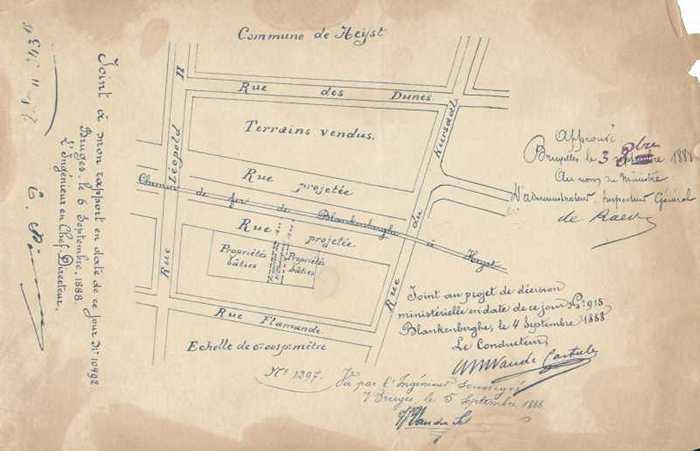 Commune de Heyst
Rue des Dunes
Terrains vendus.
Rue Léopold II
Rue projetée
Chemin de fer de Blankenberghe à Heyst
Rue projetée
Propriétés bâties
Propriétés bâties
Rue du Kursaal
Rue Flamande
Echelle de
Nº 1397.
Joint à mon rapport en date de ce jour Nº 10492
Bruges, le 6 Septembre, 1888.
L'Ingénieur en Chef Directeur,
Approuvé
Bruxelles, le 3 8bre 1888
Au nom du Ministre
L'administrateur, Inspecteur Général
de Raeve
Joint au projet de décision
ministérielle en date de ce jour Nº 918
Blankenberghe, le 4 Septembre 1888
Le Conducteur
Vu par l'Ingénieur soussigné
Bruges, le 5 Septembre 1888